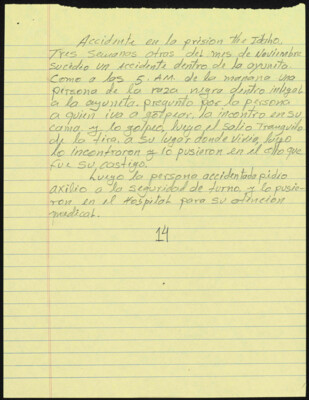 Accidente en la prision the Idaho.
Tres Semanas atras del mes de Noviembre
sucedio un accidente dentro de la ayunita.
Como a las 5. A.M. de la mañana una
persona de la raza negra dentro inlegal
a la ayunita. pregunto por la persona
a quien iva a golpear, la incontro en su
cama y lo golpeo, luego el salio tranquilo
de la tira, a su lugar donde vivia, luego
lo incontraron y lo pusieron en el ollo que
fue su castigo.
Luego la persona accidentada pidio
axilio a la seguridad de turno y lo pusie-
ron en el Hospital para su atencion
medical.
14